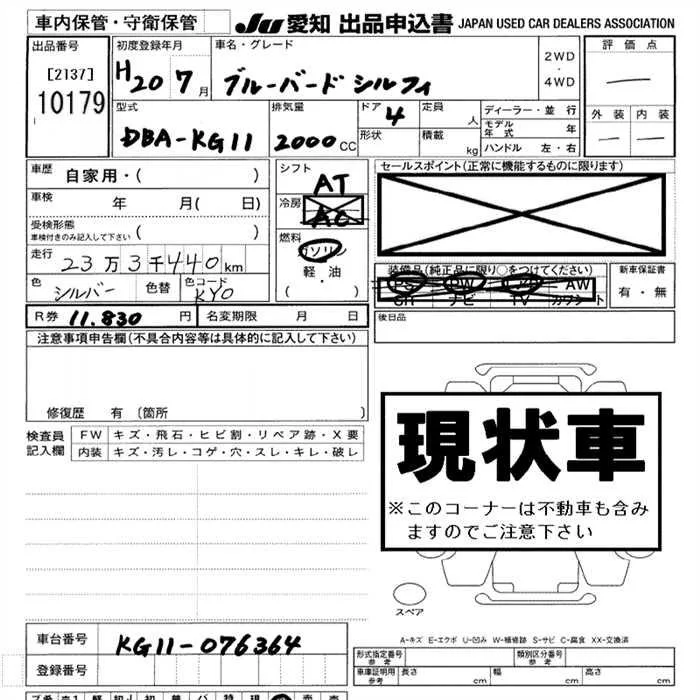 車内保管・守衛保管
JU 愛知 出品申込書 JAPAN USED CAR DEALERS ASSOCIATION
出品番号
[2137]
10179
初度登録年月
H20 7月
車名・グレード
ブルーバード シルフィ
2WD
・
4WD
評価点
—
型式
DBA-KG11
排気量
2000 CC
ドア
4
定員
人
形状
積載
kg
ディーラー・並行
モデル年式 年
ハンドル 左・右
外装 内装
— —
車歴 自家用・( )
車検 年 月( 日)
受検形態
車検付きのみ記入して下さい ( )
走行
23万3千440km
色 シルバー 色替 色コード KY0
シフト
AT
冷房
AC
燃料
ガソリン
軽・油
( )
セールスポイント(正常に機能するものに限ります)
装備品(純正品に限り○をつけてください)
PS PW AW
SR ナビ TV カワシート
新車保証書
有・無
R券 11.830 円 名変期限 月 日
後日品
注意事項申告欄(不具合内容等は具体的に記入して下さい)
修復歴 有 〔箇所
検査員記入欄
FW キズ・飛石・ヒビ割・リペア跡・X要
内装 キズ・汚レ・コゲ・穴・スレ・キレ・破レ
現状車
※このコーナーは不動車も含み
ますのでご注意下さい
スペア
A-キズ E-エクボ U-凹み W-補修跡 S-サビ C-腐食 XX-交換済
車台番号 KG11-076364
登録番号
形式指定番号 参考
類別区分番号 参考
車庫証明用 参考 長さ cm 幅 cm 高さ cm